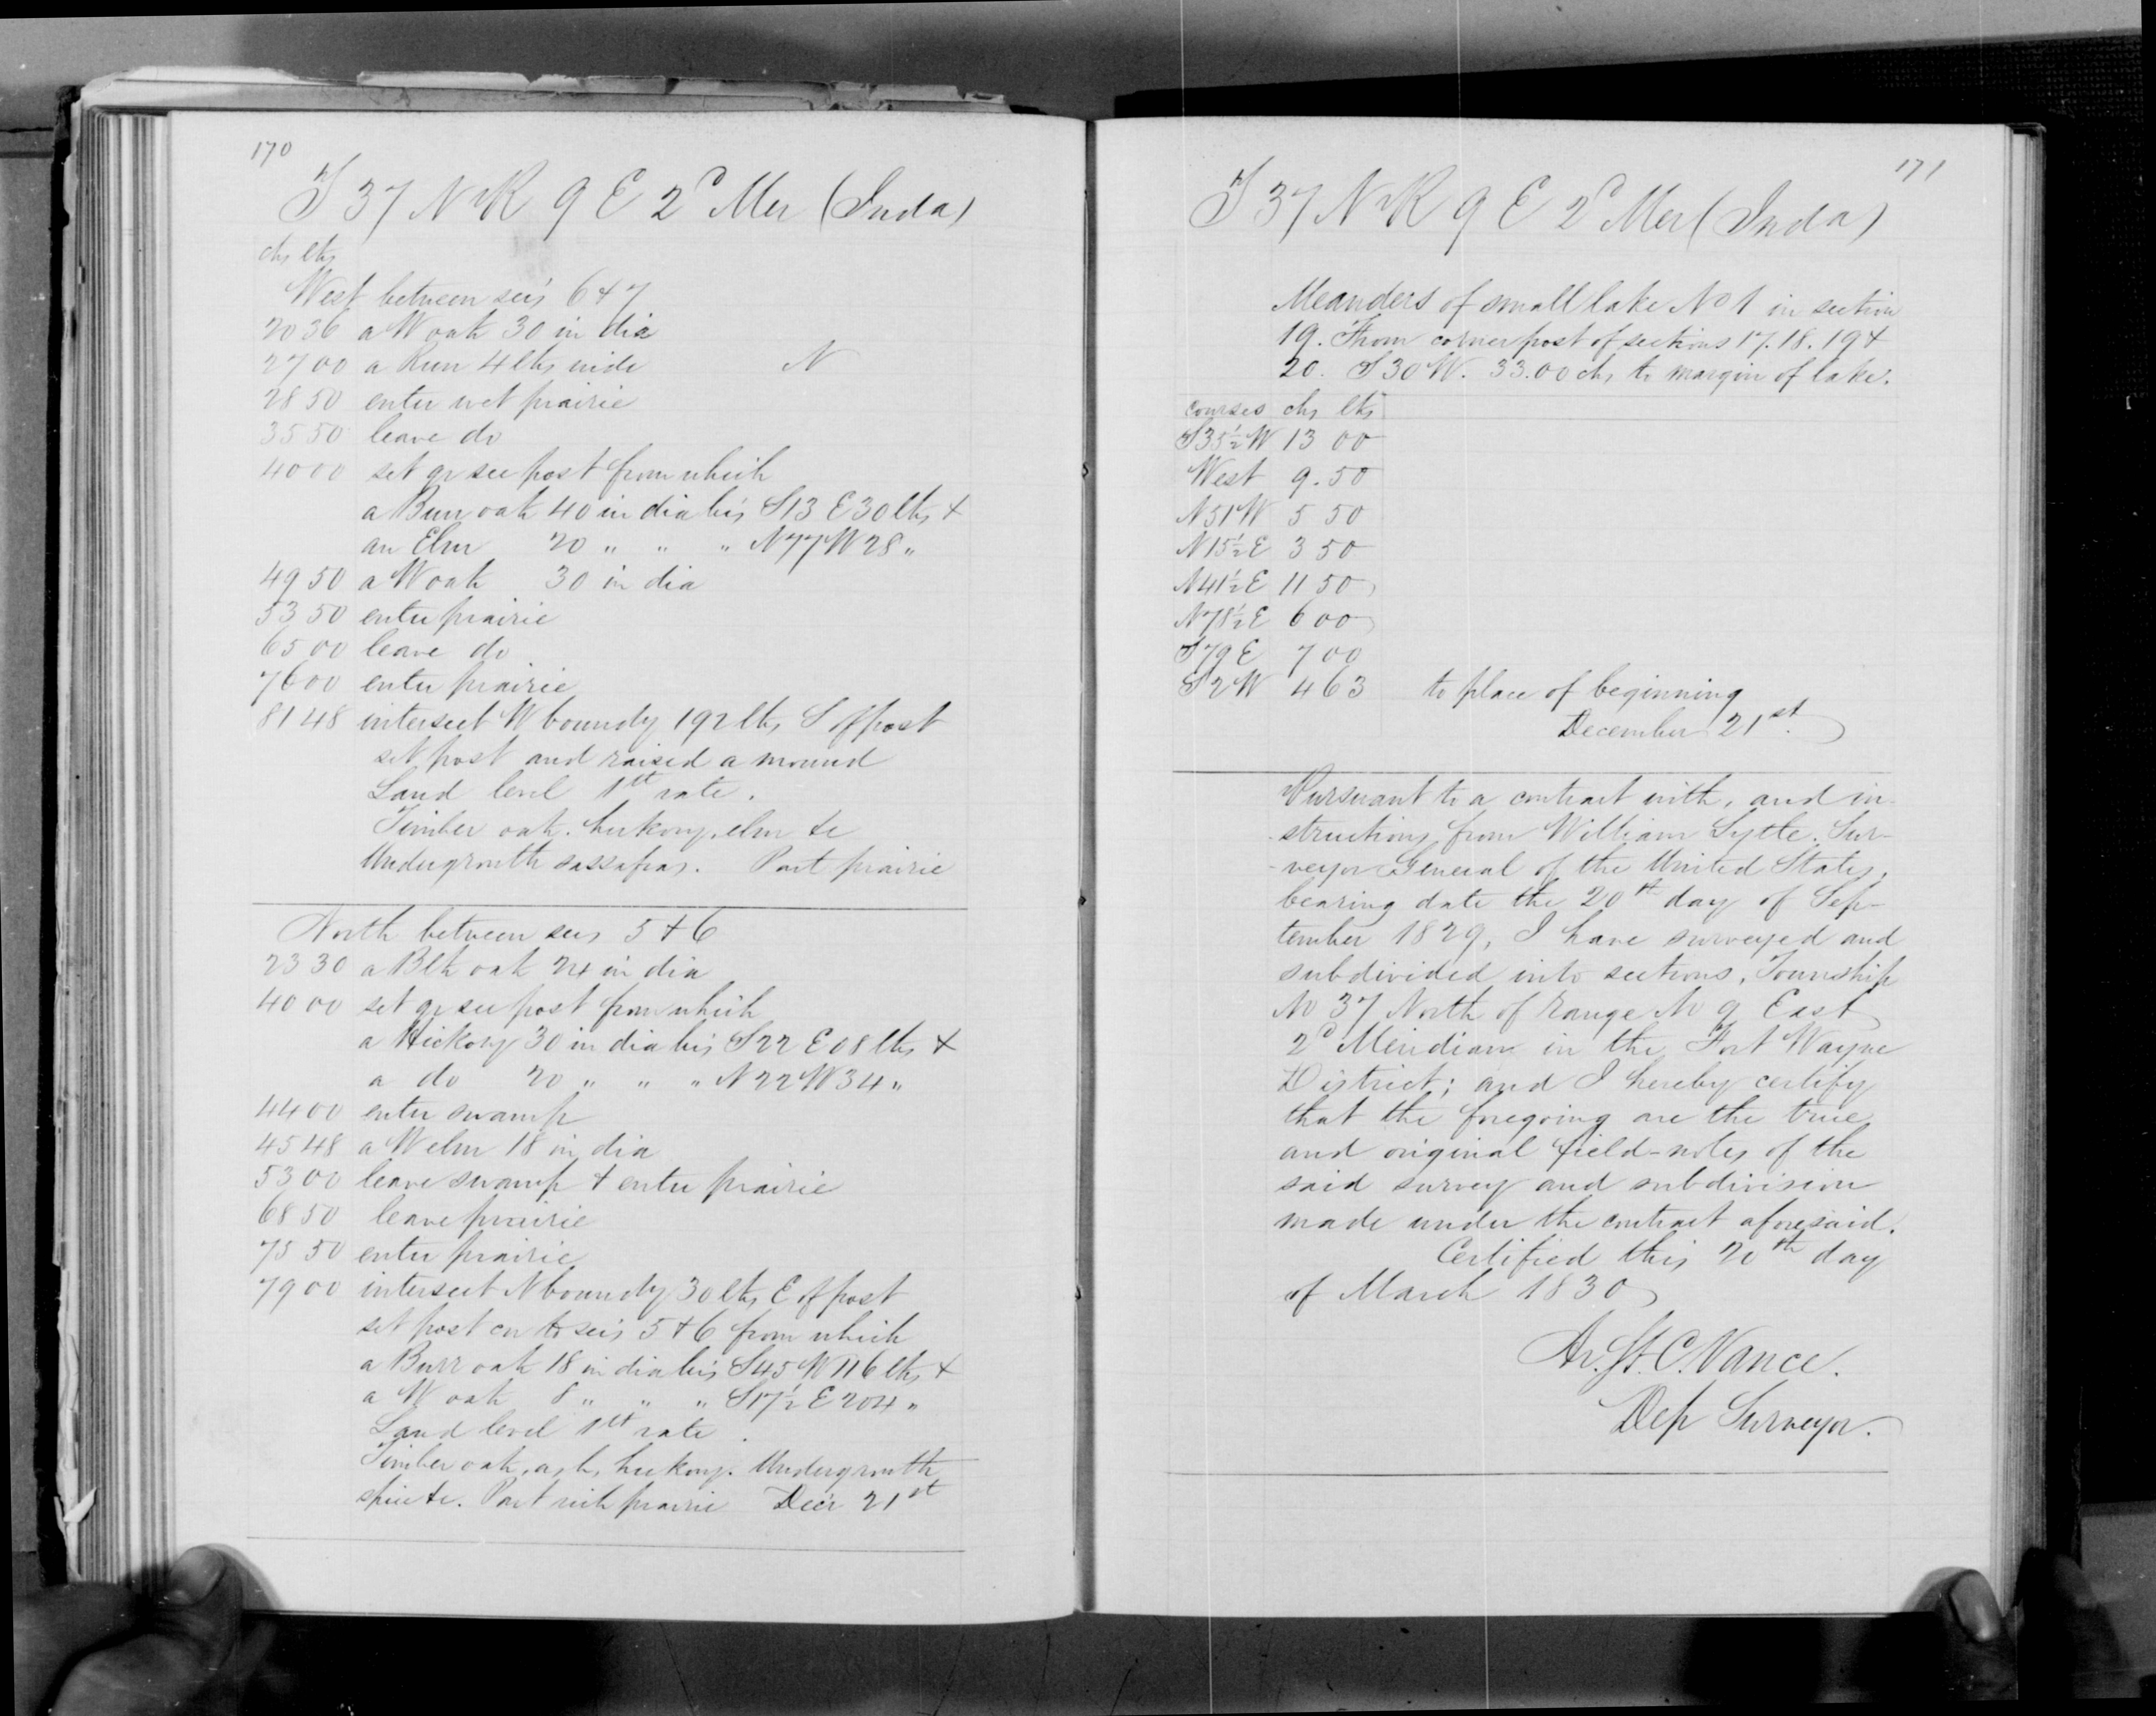 170
T 37 N R 9 E 2d Mer (Inda)
chs lks
West between sec's 6 & 7
20 36 a W oak 30 in dia
27 00 a Run 4 lks wide N
28 50 enter wet prairie
35 50 leave do
40 00 set qr sec post from which
a Burr oak 40 in dia br's S 13 E 30 lks &
an Elm 20 " " " N 77 W 28 "
49 50 a W oak 30 in dia
53 50 enter prairie
65 00 leave do
76 00 enter prairie
81 48 intersect W boundy 192 lks S of post
set post and raised a mound
Land level 1st rate.
Timber oak. hickory, elm &c
Undergrowth sassafras. Part prairie
North between secs 5 & 6
23 30 a Blk oak 24 in dia
40 00 set qr sec post from which
a Hickory 30 in dia br's S 22 E 08 lks &
a do 20 " " " N 22 W 34 "
44 00 enter swamp
45 48 a W elm 18 in dia
53 00 leave swamp & enter prairie
68 50 leave prairie
75 50 enter prairie
79 00 intersect N boundy 30 lks E of post
set post cor to sec's 5 & 6 from which
a Burr oak 18 in dia br's S 45 W 116 lks &
a W oak 8 " " " S 17½ E 204 "
Land level 1st rate.
Timber oak, ash, hickory. Undergrowth
spice &c. Part rich prairie Dec'r 21st
171
T 37 N R 9 E 2d Mer (Inda)
Meanders of small lake No 1 in section
19. From corner post of sections 17. 18. 19 &
20. S 30 W. 33.00 chs to margin of lake.
courses chs lks
S 35½ W 13 00
West 9.50
N 51 W 5 50
N 15½ E 3 50
N 41½ E 11 50
N 78½ E 6 00
S 79 E 7 00
S 2 W 4 63 to place of beginning
December 21st.
Pursuant to a contract with, and in-
-structions from William Lytle. Sur-
-veyor General of the United States,
bearing date the 20th day of Sep-
tember 1829, I have surveyed and
subdivided into sections, Township
No 37 North of range No 9 East
2d Meridian in the Fort Wayne
District; and I hereby certify
that the foregoing are the true
and original field-notes of the
said survey and subdivision
made under the contract aforesaid.
Certified this 20th day
of March 1830
Ar. St. C. Vance.
Dep Surveyor.